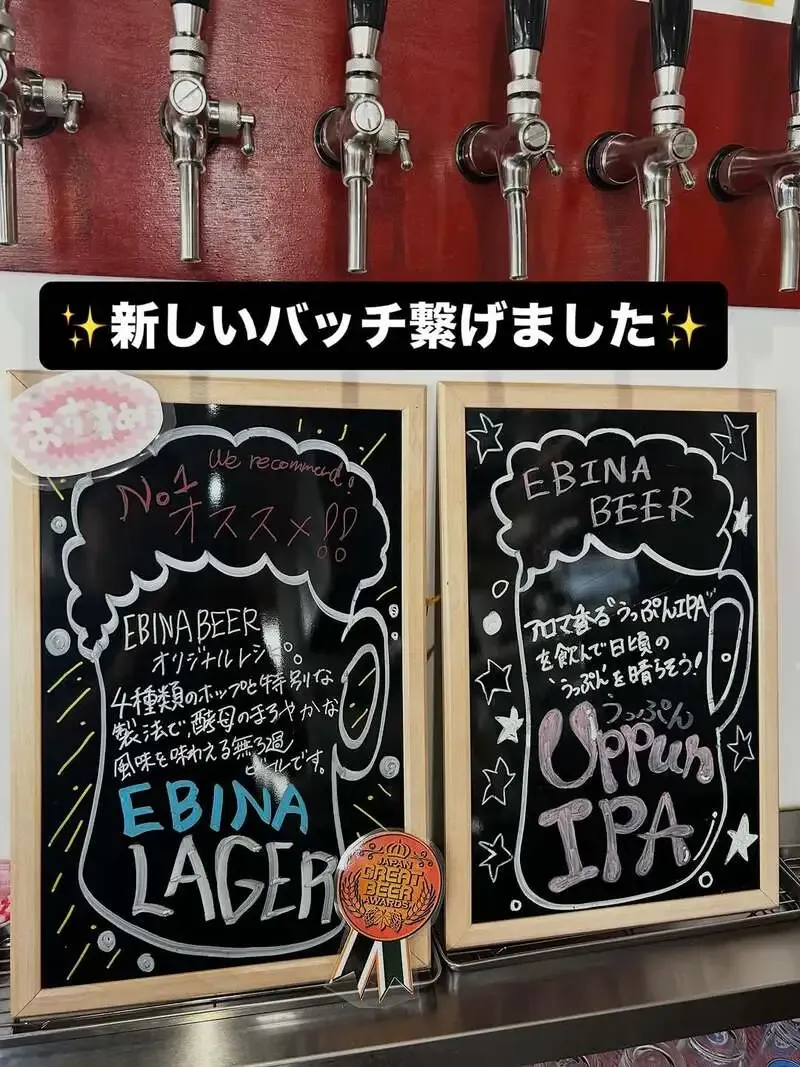 ✨新しいバッチ繋げました✨
おすすめ
We recommend!
No.1
オススメ!!
EBINA BEER
オリジナルレシピ。
4種類のホップと特別な
製法で、酵母のまろやかな
風味を味わえる無ろ過
ビールです。
EBINA
LAGER
JAPAN
GREAT
BEER
AWARDS
EBINA
BEER
アロマ香る"うっぷんIPA"
を飲んで日頃の
"うっぷん"を晴らそう!
うっぷん
Uppun
IPA